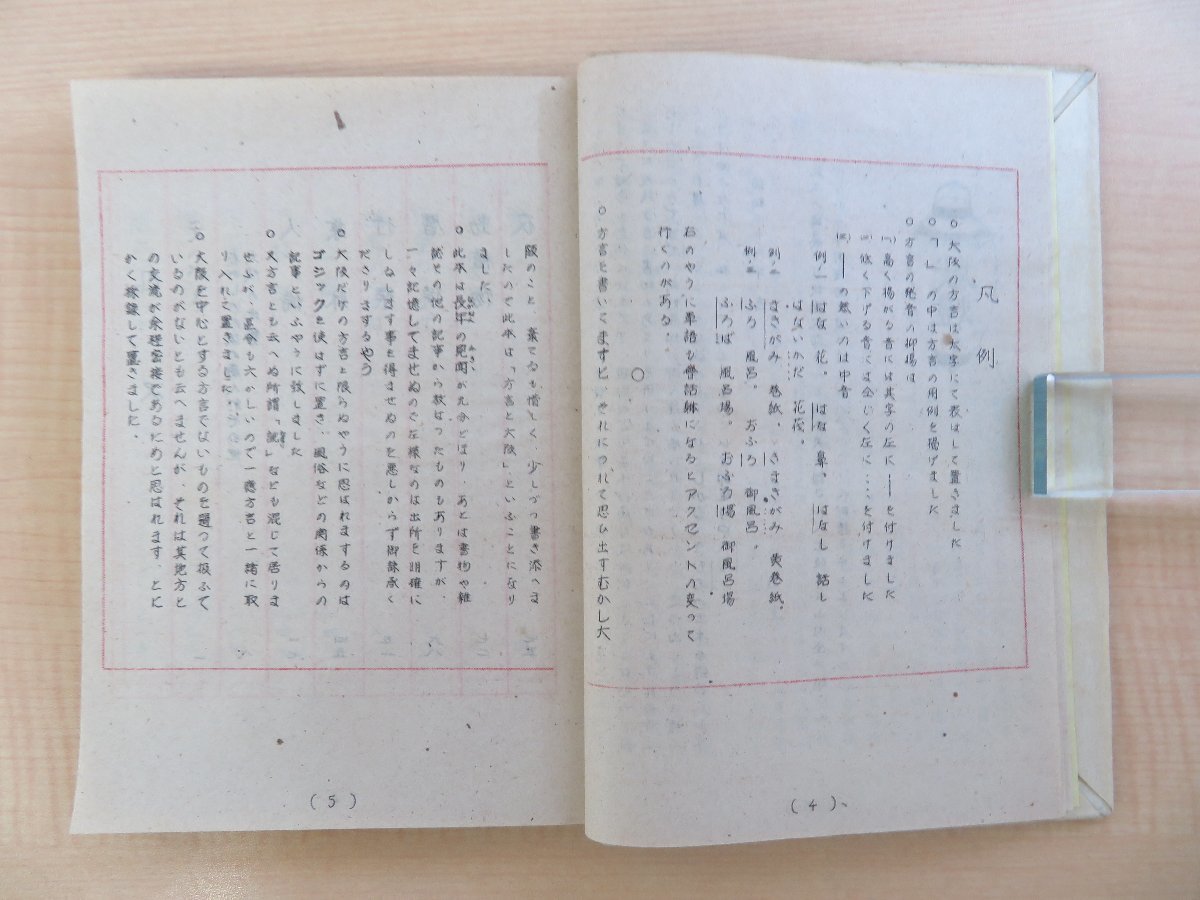 凡例
○大阪の方言は太字にて表はして置きました
○「 」の中は方言の用例を揚げました
○方言の発音の抑揚は
㈠高く揚がる音には其字の左に――を付けました
㈡低く下げる音には全じく左に‥‥を付けました
㈢――の無いのは中音
例・一 はな 花。 はな 鼻。 はなし 話し
はないかだ 花筏。
例・二 まきがみ 巻紙。 きまきがみ 黄巻紙。
例・三 ふろ 風呂。 おふろ 御風呂。
ふろば 風呂場。おふろ場 御風呂場
右のやうに単語も会話躰になるとアクセントの変って
行くのがある。
○
○方言を書いてますと、それにつれて思ひ出すむかし大
(4)
阪のこと、棄てるも惜しく、少しづつ書き添へま
したので此本は「方言と大阪」といふことになり
ました。
○此本は長年の見聞が九分どほり、あとは書物や雑
誌との他の記事から教はったものもありますが、
一々記憶してませぬので左様なのは出所を明確に
しるします事を得ませぬのを悪しからず御諒承く
ださりまするやう
○大阪だけの方言と限らぬやうに思はれまするのは
ゴシックを使はずに置き、風俗などの関係からの
記事といふやうに致しました
○又方言とも云へぬ所謂「訛」なども混じて居りま
せふが、区分も六かしいので一應方言と一緒に取
り入れて置きました
○大阪を中心とする方言でないものを誤って扱ふて
いるのがないとも云へませんが、それは其地方と
の交流が永程密接であるためと思はれます、とに
かく採録して置きました。
(5)